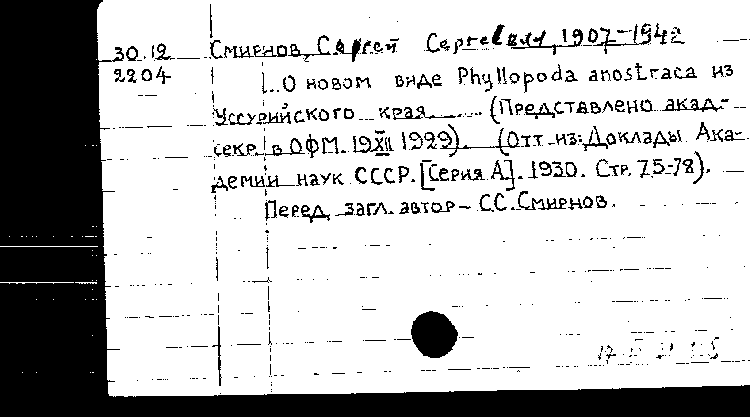 30.12 Смирнов, Сергей Сергеевич, 1907-1942
2204 ...О новом виде Phyllopoda anostraca из
Уссурийского края...... (Представлено акад.-
секр. в ОФМ. 19 XII 1929). (Отт. из: Доклады Ака-
демии наук СССР. [Серия А]. 1930. Стр. 75-78).
Перед загл. автор - С.С. Смирнов.